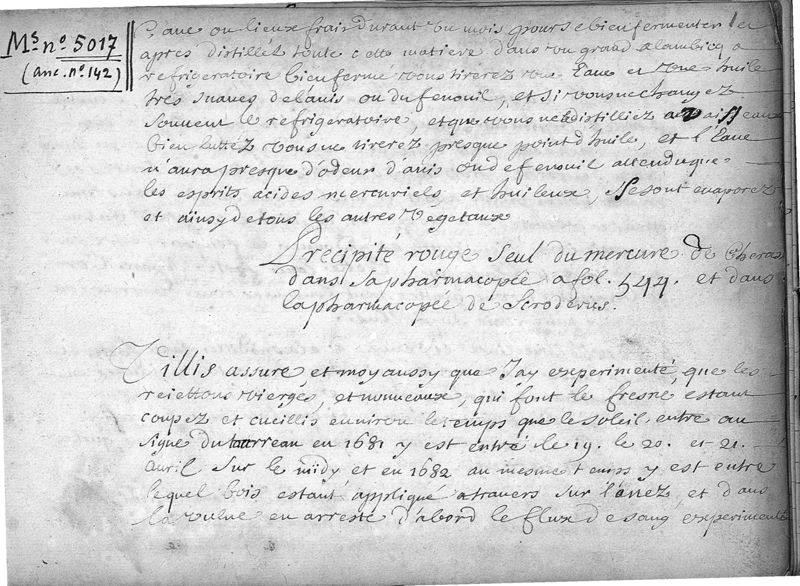 Ms. no. 5017
(anc. no. 142)
Cave ou lieux frais durant un mois pour se bien fermenter et
apres distillez toute cette matiere dans un grand alambicq a
refrigeratoire bien fermé vous tirerez une Eaue et une huile
trés suaves de l'anis ou du fenouil, et si vous ne changez
souvent le refrigeratoire, et que vous ne distilliez a vaisseaux
bien luttez vous ne tirerez presque point d'huile, et l'Eaue
n'aura presque d'odeur d'anis ou de fenouil attendu que
les esprits acides mercuriels, et huileux, se sont evaporez
et ainsy de tous les autres vegetaux
Precipité rouge seul du mercure de Cheras
dans sa pharmacopée a fol. 544. et dans
la pharmacopée de Scroderus.
Villis assure, et moy aussy que Jay experimenté, que les
reiettons vierges, et nouveaux, qui font le fresne estant
coupez et cueillis environ le temps que le soleil entre au
signe du taurreau en 1681 y est entré le 19. le 20. et 21.
avril sur le midy et en 1682 au mesme temps y est entre
lequel bois estant appliqué a travers sur l'anez, et dans
la vulve en arreste d'abord le flux de sang experimenté